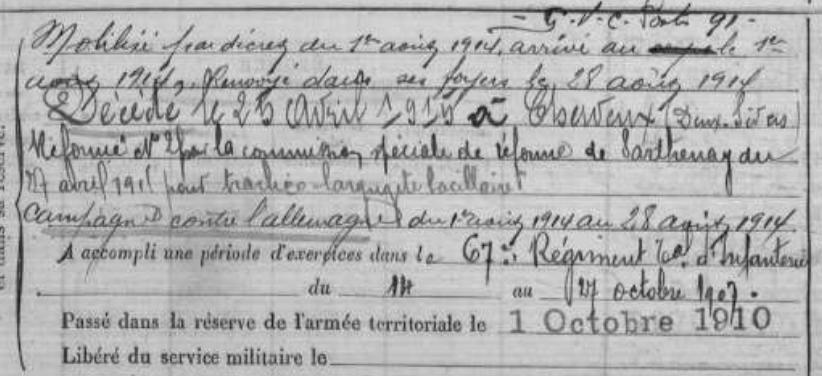 G.V.C. Poste 91 -
Mobilisé par décret du 1er août 1914, arrivé au le 1er
août 1914, Renvoyé dans ses foyers le 28 août 1914
Décédé le 25 Avril 1915 à (Deux-Sèvres)
Réformé N° 2 par la commission spéciale de réforme de Parthenay du
27 avril 191 pour trachéo-laryngite bacillaire
Campagne contre l'allemagne du 1er août 1914 au 28 août 1914
A accompli une période d'exercices dans le 67e Régiment Tal d'Infanterie
du au 27 octobre 1907.
Passé dans la réserve de l'armée territoriale le 1 Octobre 1910
Libéré du service militaire le
et dans sa réserve.